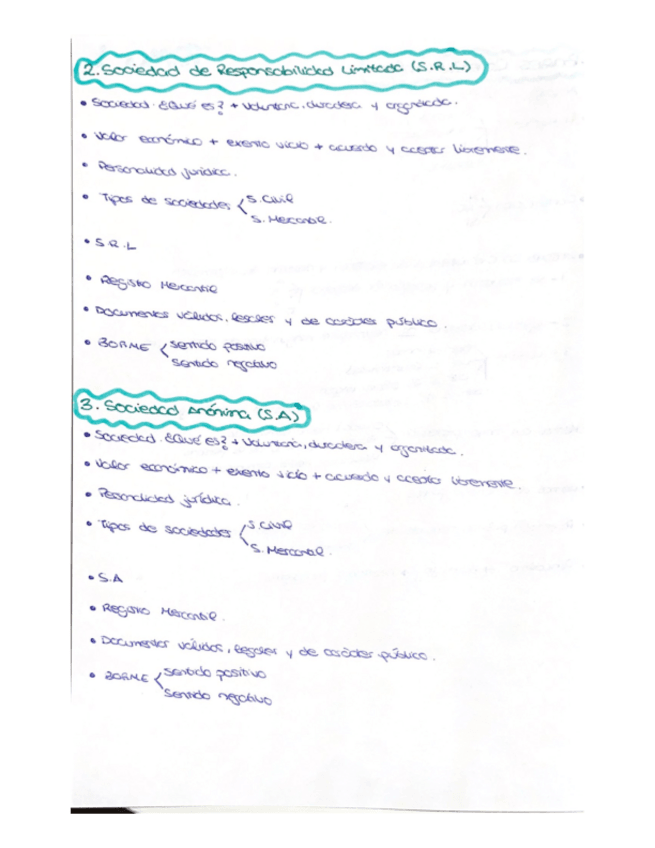 2. Sociedad de Responsabilidad Limitada (S.R.L)
• Sociedad. ¿Qué es? + Voluntaria, duradera y organizada.
• Valor económico + exento vicio + acuerdo y aceptar libremente.
• Personalidad jurídica.
• Tipos de sociedades
S. Civil
S. Mercantil.
• S.R.L
• Registro Mercantil
• Documentos válidos, legales y de carácter público.
• BORME
sentido positivo
sentido negativo
3. Sociedad Anónima (S.A)
• Sociedad. ¿Qué es? + Voluntaria, duradera y organizada.
• Valor económico + exento vicio + acuerdo y aceptar libremente.
• Personalidad jurídica.
• Tipos de sociedades
S. Civil
S. Mercantil.
• S.A
• Registro Mercantil.
• Documentos válidos, legales y de carácter público.
• BORME
sentido positivo
sentido negativo